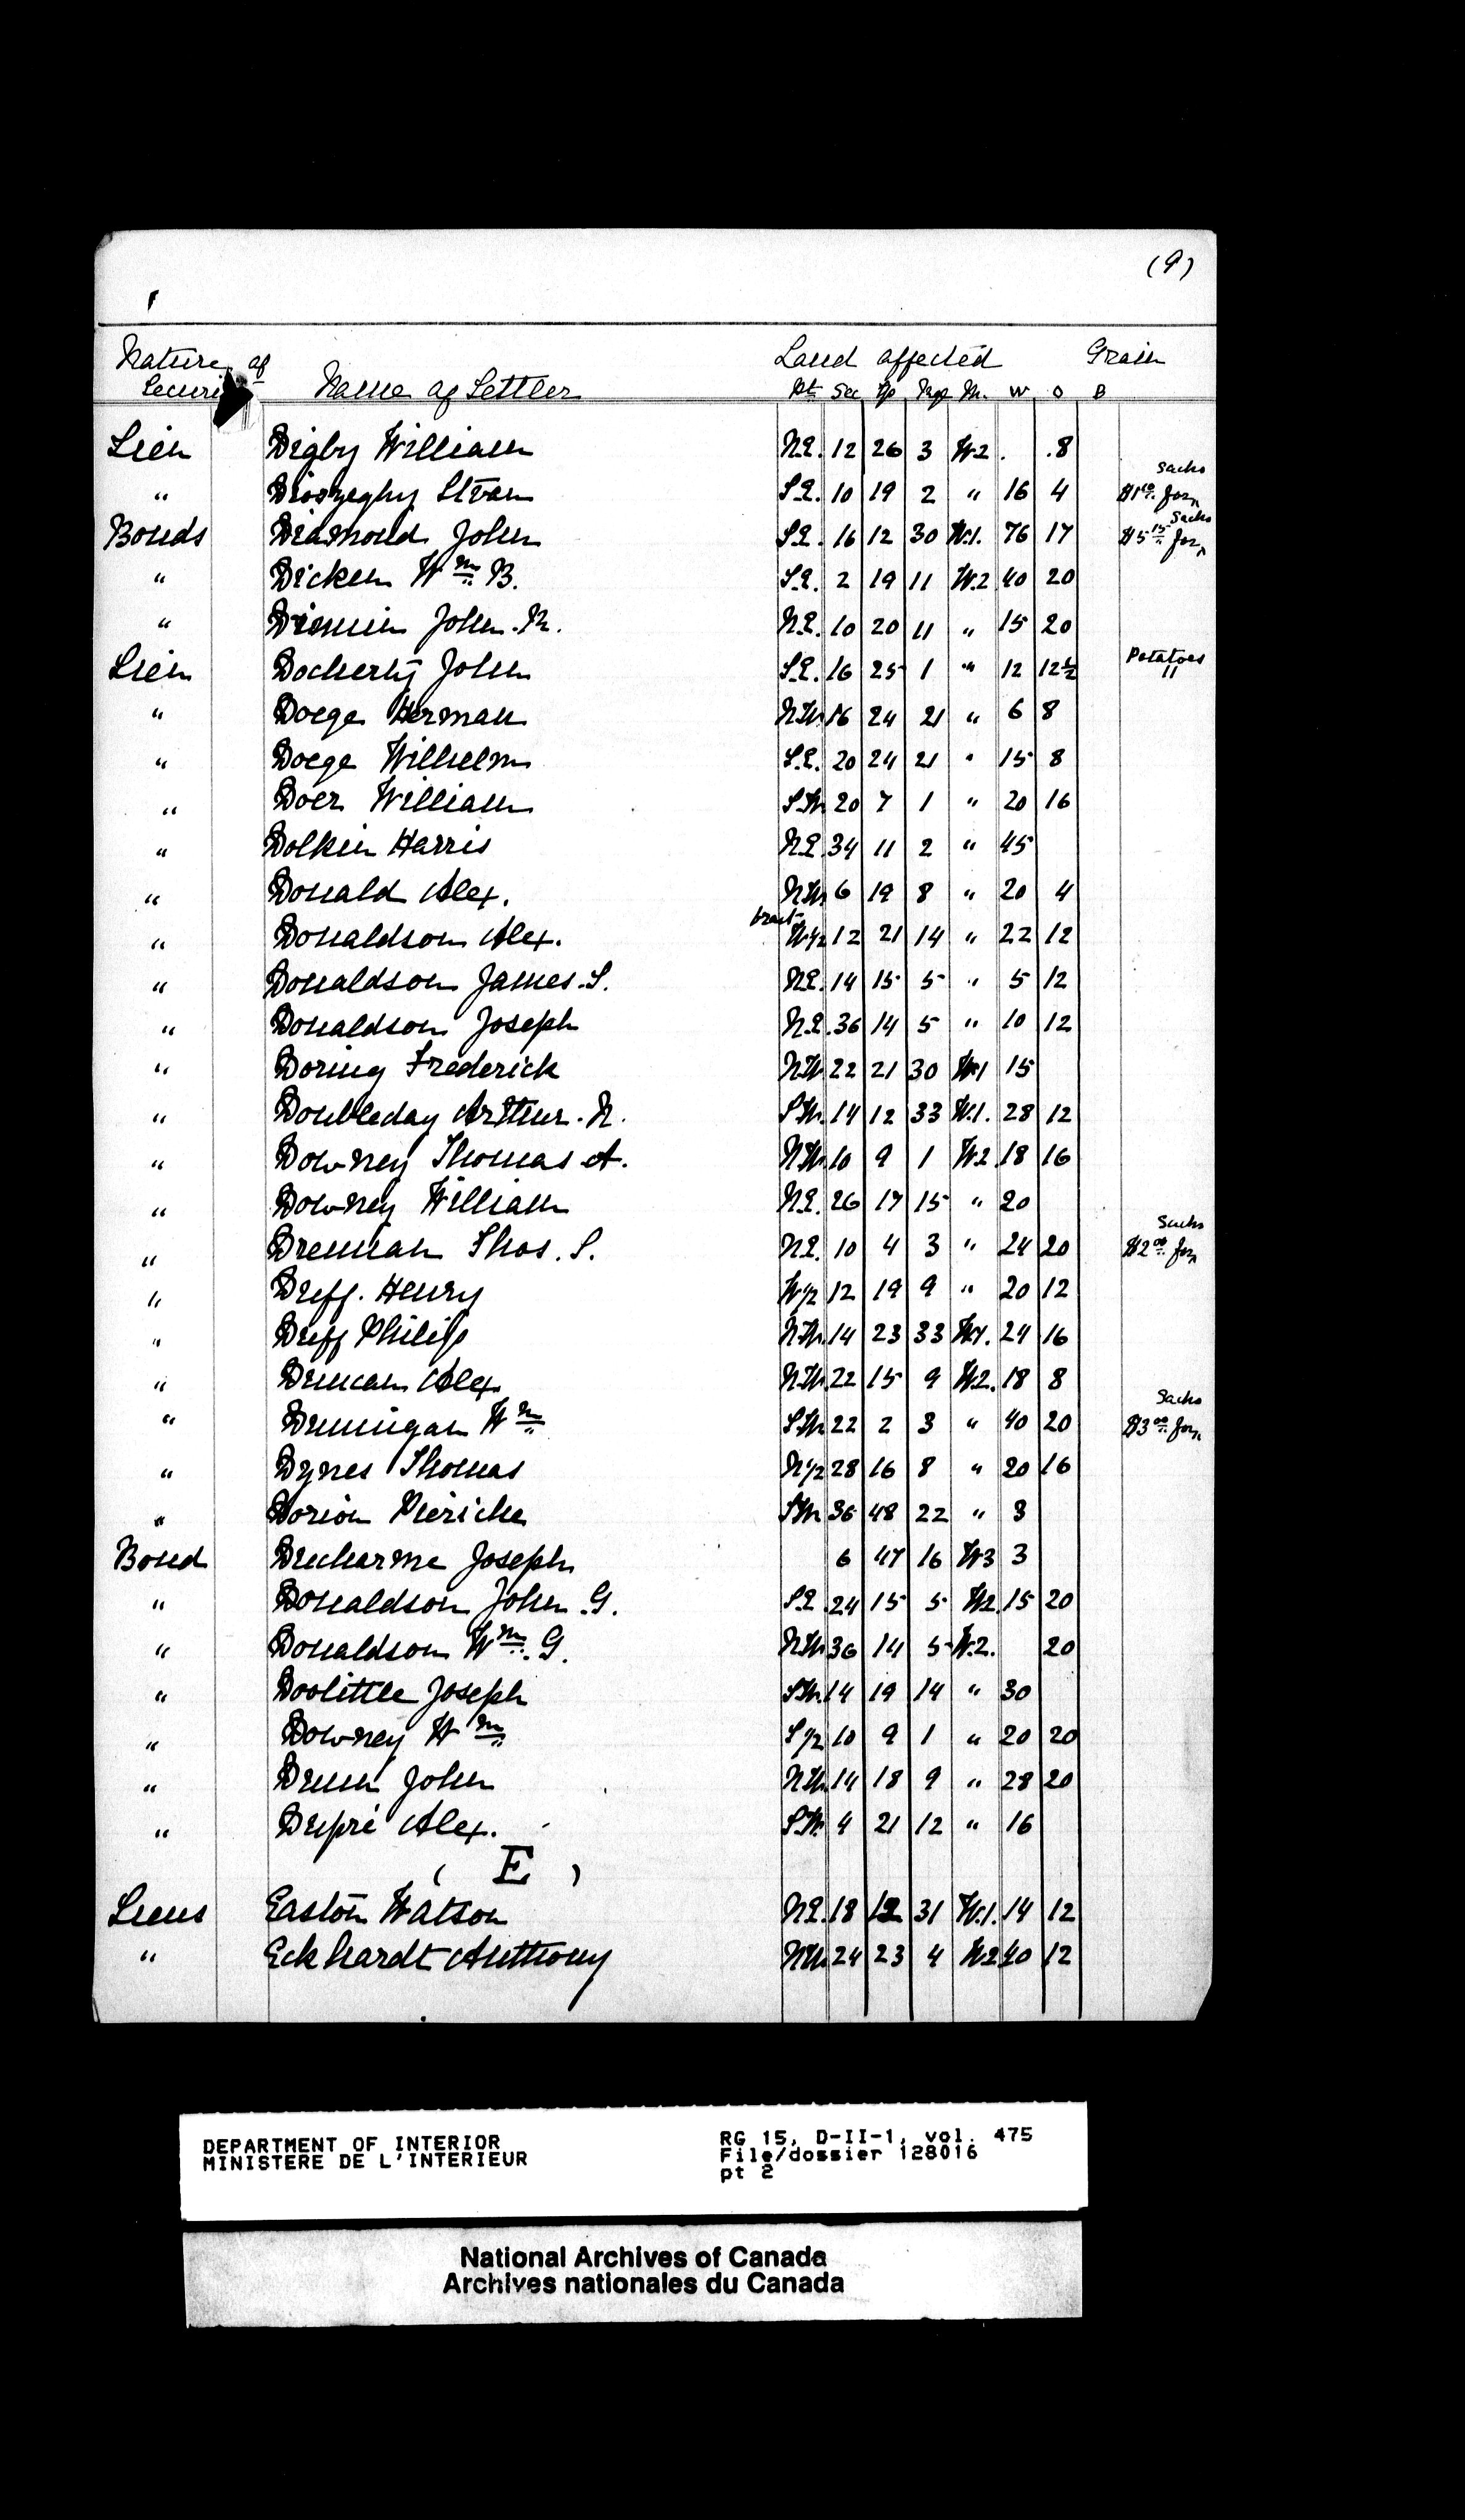 (9)
Nature of Land affected Grain
Securi Name of Settler Pt Sec Tp Rge M. W O B
Lien Digby William N.E. 12 26 3 W2 . .8
" Dioszeghy Istvan S.E. 10 19 2 " 16 4 $1.10 for Sacks
Bonds Diamond John S.E. 16 12 30 W.1. 76 17 $5.15 for Sacks
" Dicken Wm B. S.E. 2 19 11 W.2 40 20
" John. N.E. 10 20 11 " 15 20
Lien Docherty John S.E. 16 25 1 " 12 12½ Potatoes 11
" Doege Herman N.W. 16 24 21 " 6 8
" Doege Wilhelm S.E. 20 24 21 " 15 8
" Doer William S.W. 20 7 1 " 20 16
" Dolkin Harris N.E. 34 11 2 " 45
" Donald Alex. N.W. 6 19 8 " 20 4
" Donaldson Alex. W½ 12 21 14 " 22 12
" Donaldson James. S. N.E. 14 15 5 " 5 12
" Donaldson Joseph N.E. 36 14 5 " 10 12
" Doring Frederick N.W. 22 21 30 W1 15
" Doubleday Arthur. N. S.W. 14 12 33 W.1. 28 12
" Downey Thomas A. N.W. 10 9 1 W2 18 16
" Downey William N.E. 26 17 15 " 20
" Drennan Thos. S. N.E. 10 4 3 " 24 20 $2.00 for Sacks
" Duff. Henry W½ 12 19 9 " 20 12
" Duff Philip N.W. 14 23 33 W1. 24 16
" Duncan Alex. N.W. 22 15 9 W2. 18 8
" Dunnigan Wm S.W. 22 2 3 " 40 20 $3.00 for Sacks
" Dynes Thomas N½ 28 16 8 " 20 16
" Dorion Pieriche S.W. 36 48 22 " 3
Bond Ducharme Joseph 6 47 16 W3 3
" Donaldson John. G. S.E. 24 15 5 W2 15 20
" Donaldson Wm. G. N.W. 36 14 5 W.2. 20
" Doolittle Joseph S.W. 14 19 14 " 30
" Downey Wm S½ 10 9 1 " 20 20
" Dunn John N.W. 14 18 9 " 28 20
" Dupré Alex. S.W. 4 21 12 " 16
( E )
Liens Easton Watson N.E. 18 12 31 W.1. 14 12
" Eckhardt Anthony N.W. 24 23 4 W2 40 12
DEPARTMENT OF INTERIOR
MINISTERE DE L'INTERIEUR
RG 15, D-II-1, vol. 475
File/dossier 128016
pt 2
National Archives of Canada
Archives nationales du Canada